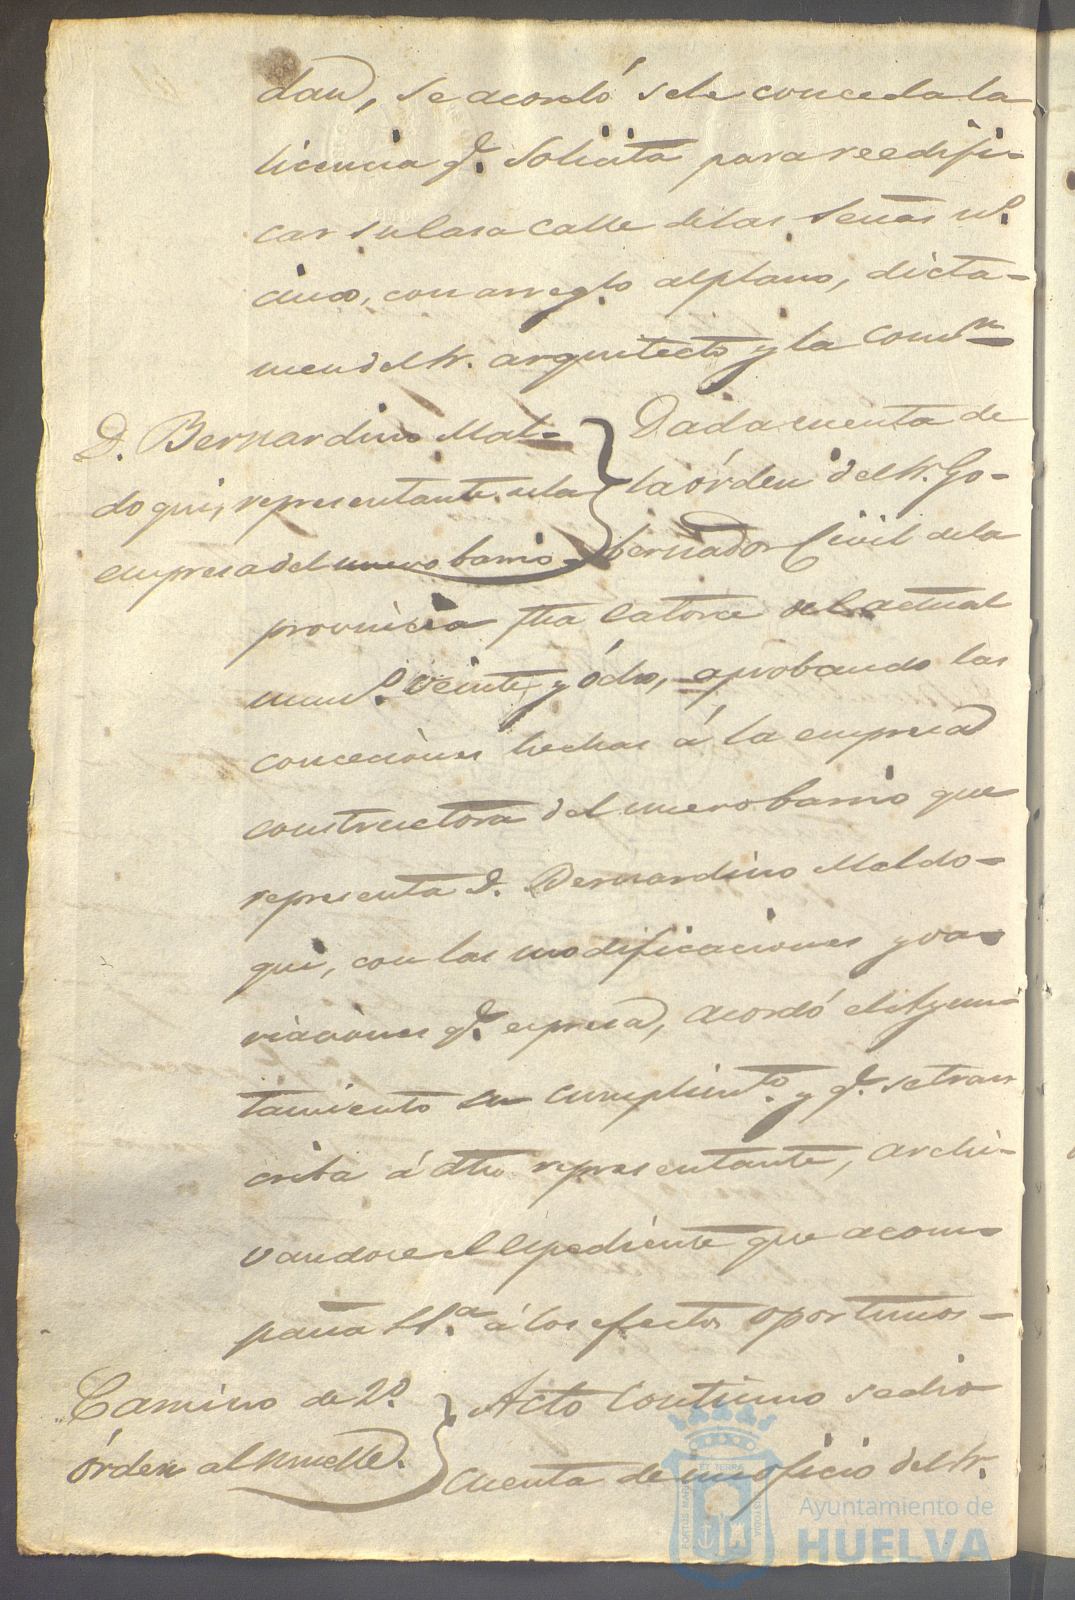 dan, se acordó se le conceda la
licencia q.e solicita para reedifi-
car su casa calle de las Señas n.o
cinco, con arreglo al plano, dicta-
men del Sr. arquitecto y la Comn.
D. Bernardino Mal-
doqui, representante de la
empresa del nuevo barrio
Dada cuenta de
la órden del Sr. Go-
bernador Civil de la
provincia fha catorce del actual
num.o veinte y ócho, aprobando las
conceciones hechas á la empresa
constructora del nuevo barrio que
representa D. Bernardino Maldo-
qui, con las modificaciones y va-
riaciones q.e espresa, acordó el Ayun-
tamiento su cumplim.to y q.e se trans
criba á dho representante, archi-
vandose el espediente que acom-
paña S.S.a á los efectos oportunos-
Camino de 2.o
órden al muelle.
Acto continuo se dió
cuenta de un oficio del Sr.
Ayuntamiento de
HUELVA